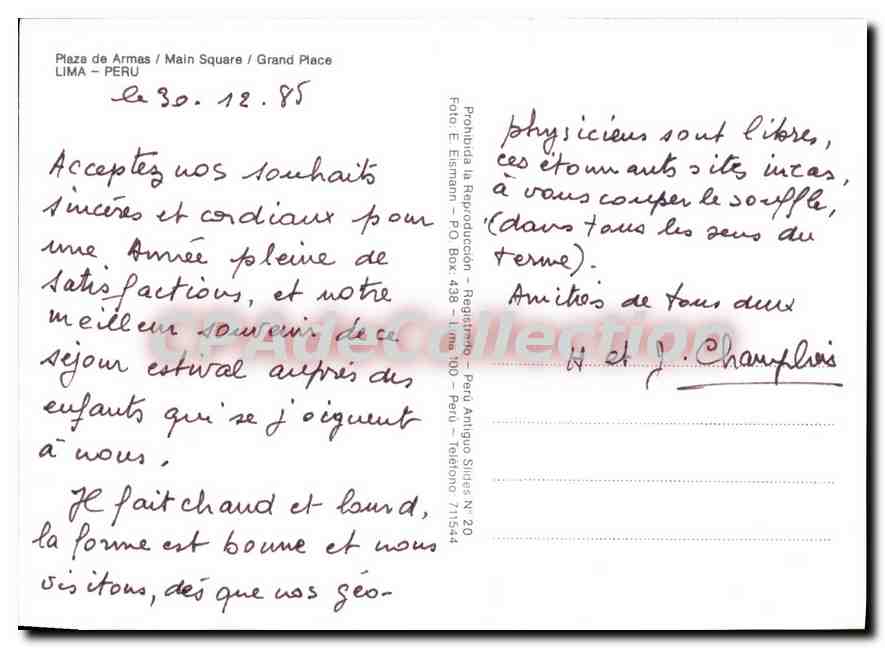 Plaza de Armas / Main Square / Grand Place
LIMA – PERU
le 30.12.85
Acceptez nos souhaits
sincères et cordiaux pour
une Année pleine de
satisfactions, et notre
meilleur souvenir de ce
séjour estival auprès des
enfants qui se joignent
à nous.
Il fait chaud et lourd,
la forme est bonne et nous
visitons, dès que nos géo-
Prohibida la Reproducción – Registrado – Perú Antiguo Slides N° 20
Foto: E. Eismann – P.O. Box: 438 – Lima 100 – Perú – Teléfono: 711544
physiciens sont libres,
ces étonnants sites incas,
à vous couper le souffle,
(dans tous les sens du
terme).
Amitiés de tous deux
H et J. 
CPAdeCollection.com